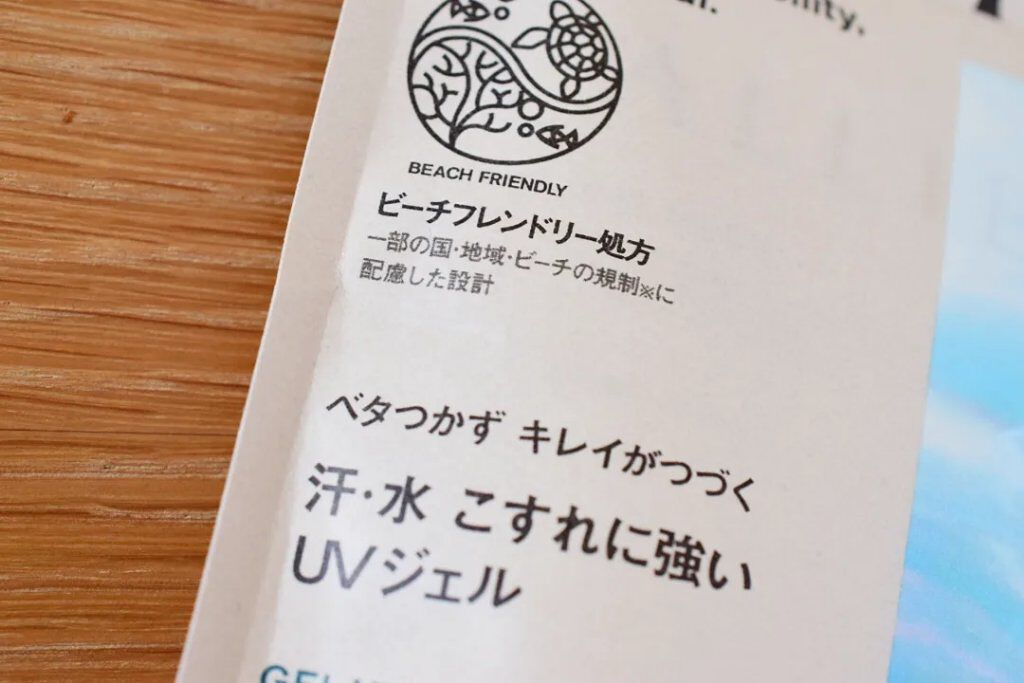 BEACH FRIENDLY
ビーチフレンドリー処方
一部の国・地域・ビーチの規制※に
配慮した設計
ベタつかず キレイがつづく
汗・水 こすれに強い
UVジェル